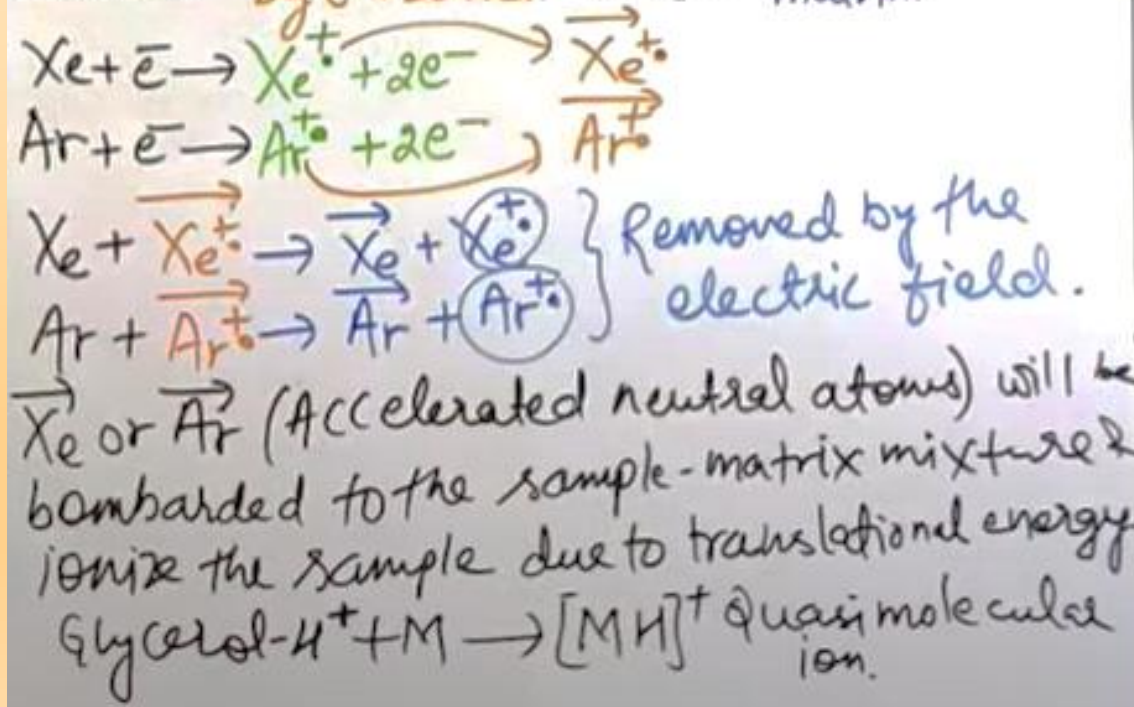 Xe + e⁻ → Xe⁺• + 2e⁻ → Xe⁺•
Ar + e⁻ → Ar⁺• + 2e⁻ → Ar⁺•
Xe + Xe⁺• → Xe + Xe⁺• } Removed by the
Ar + Ar⁺• → Ar + Ar⁺• electric field.
Xe or Ar (Accelerated neutral atoms) will be
bombarded to the sample-matrix mixture &
ionize the sample due to translational energy
Glycerol-H⁺ + M → [MH]⁺ Quasimolecular
ion.